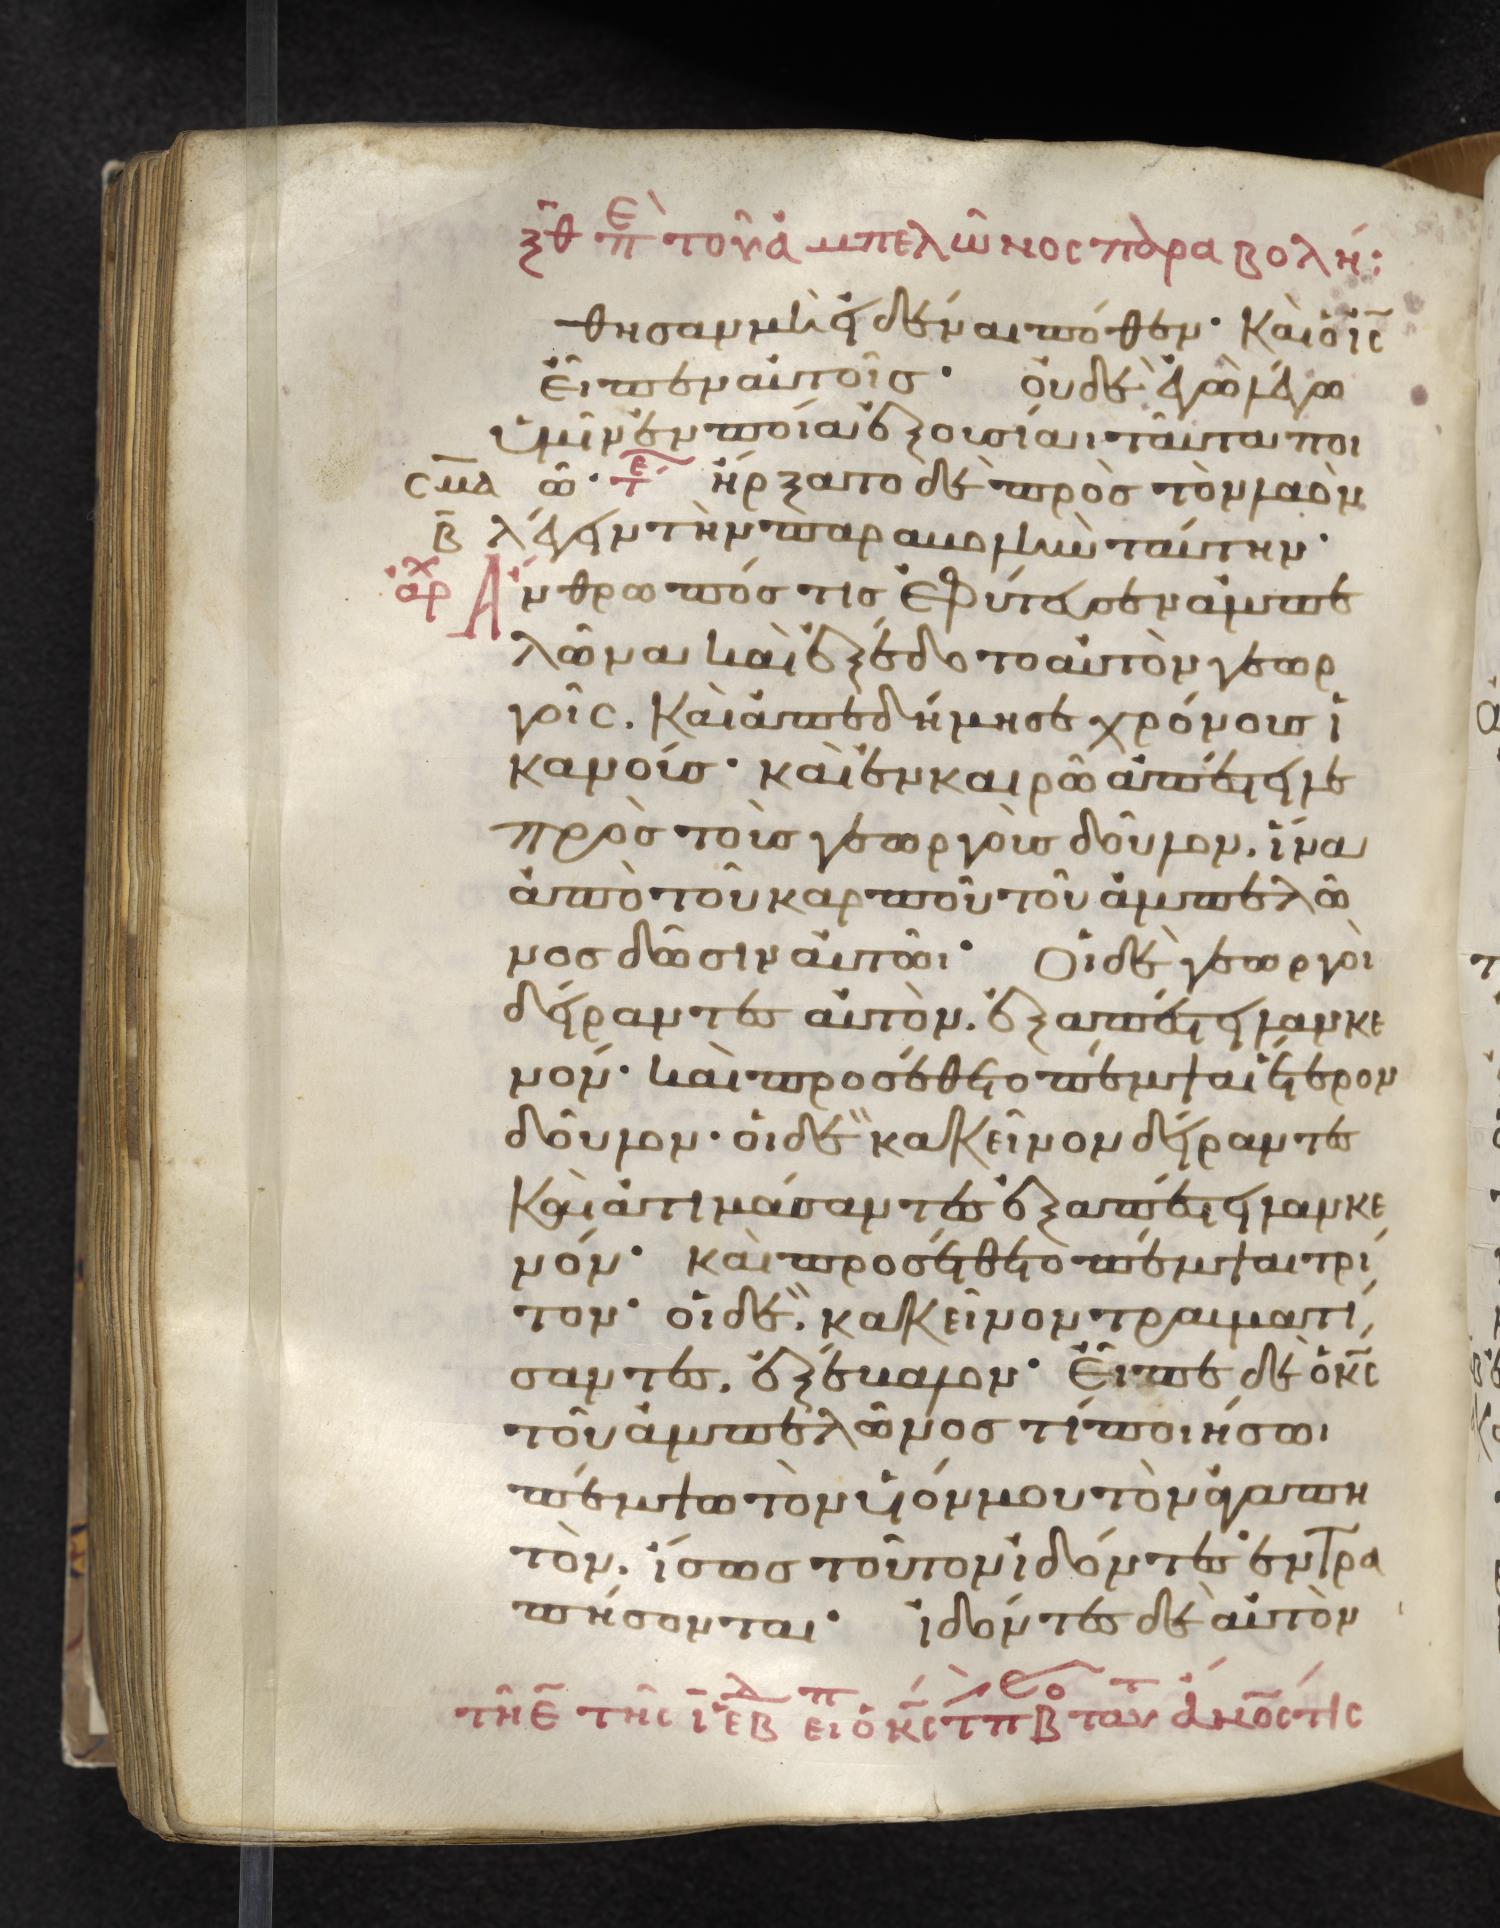 ξθ πε τοῦ ἀμπελῶνος παραβολή:
θησαν μὴ εἰδέναι πόθεν· Καὶ ὁ ις
εἶπεν αὐτοῖσ· οὐδὲ ἐγὼ λέγω
ὑμῖν ἐν ποία ἐξουσία ταῦτα ποι
σμα ῶ· τε ἤρξατο δὲ πρὸσ τὸν λαὸν
β λέγειν τὴν παραβολὴν ταύτην·
ἀρχ Ἄνθρωπόσ τισ ἐφύτευσεν ἀμπε
λῶνα καὶ ἐξέδοτο αὐτὸν γεωρ
γοῖς. Καὶ ἀπεδήμησε χρόνουσ ἱ
κανούσ· καὶ ἐν καιρῶ ἀπέστειλε
πρὸσ τοὺσ γεωργοὺσ δοῦλον. ἵνα
ἀπὸ τοῦ καρποῦ τοῦ ἀμπελῶ
νοσ δῶσιν αὐτῶι· Οἱ δὲ γεωργοὶ
δείραντεσ αὐτὸν. ἐξαπέστειλαν κε
νόν· καὶ προσέθετο πέμψαι ἕτερον
δοῦλον· οἱ δὲ κακεῖνον δείραντεσ
Καὶ ἀτιμάσαντεσ ἐξαπέστειλαν κε
νόν· καὶ προσέθετο πέμψαι τρί
τον· οἱ δὲ. κακεῖνον τραυματί
σαντεσ. ἐξέβαλον· Εἶπε δὲ ὁ κς
τοῦ ἀμπελῶνοσ τί ποιήσω·
πέμψω τὸν υἱόν μου τὸν ἀγαπη
τὸν. ἴσωσ τοῦτον ἰδόντεσ ἐντρα
πήσονται· ἰδόντεσ δὲ αὐτὸν
τῆ ε τῆς ιε ἑβδ εἶπ ὁ κς τὴν πβολ ταύτ ἄνος τίς